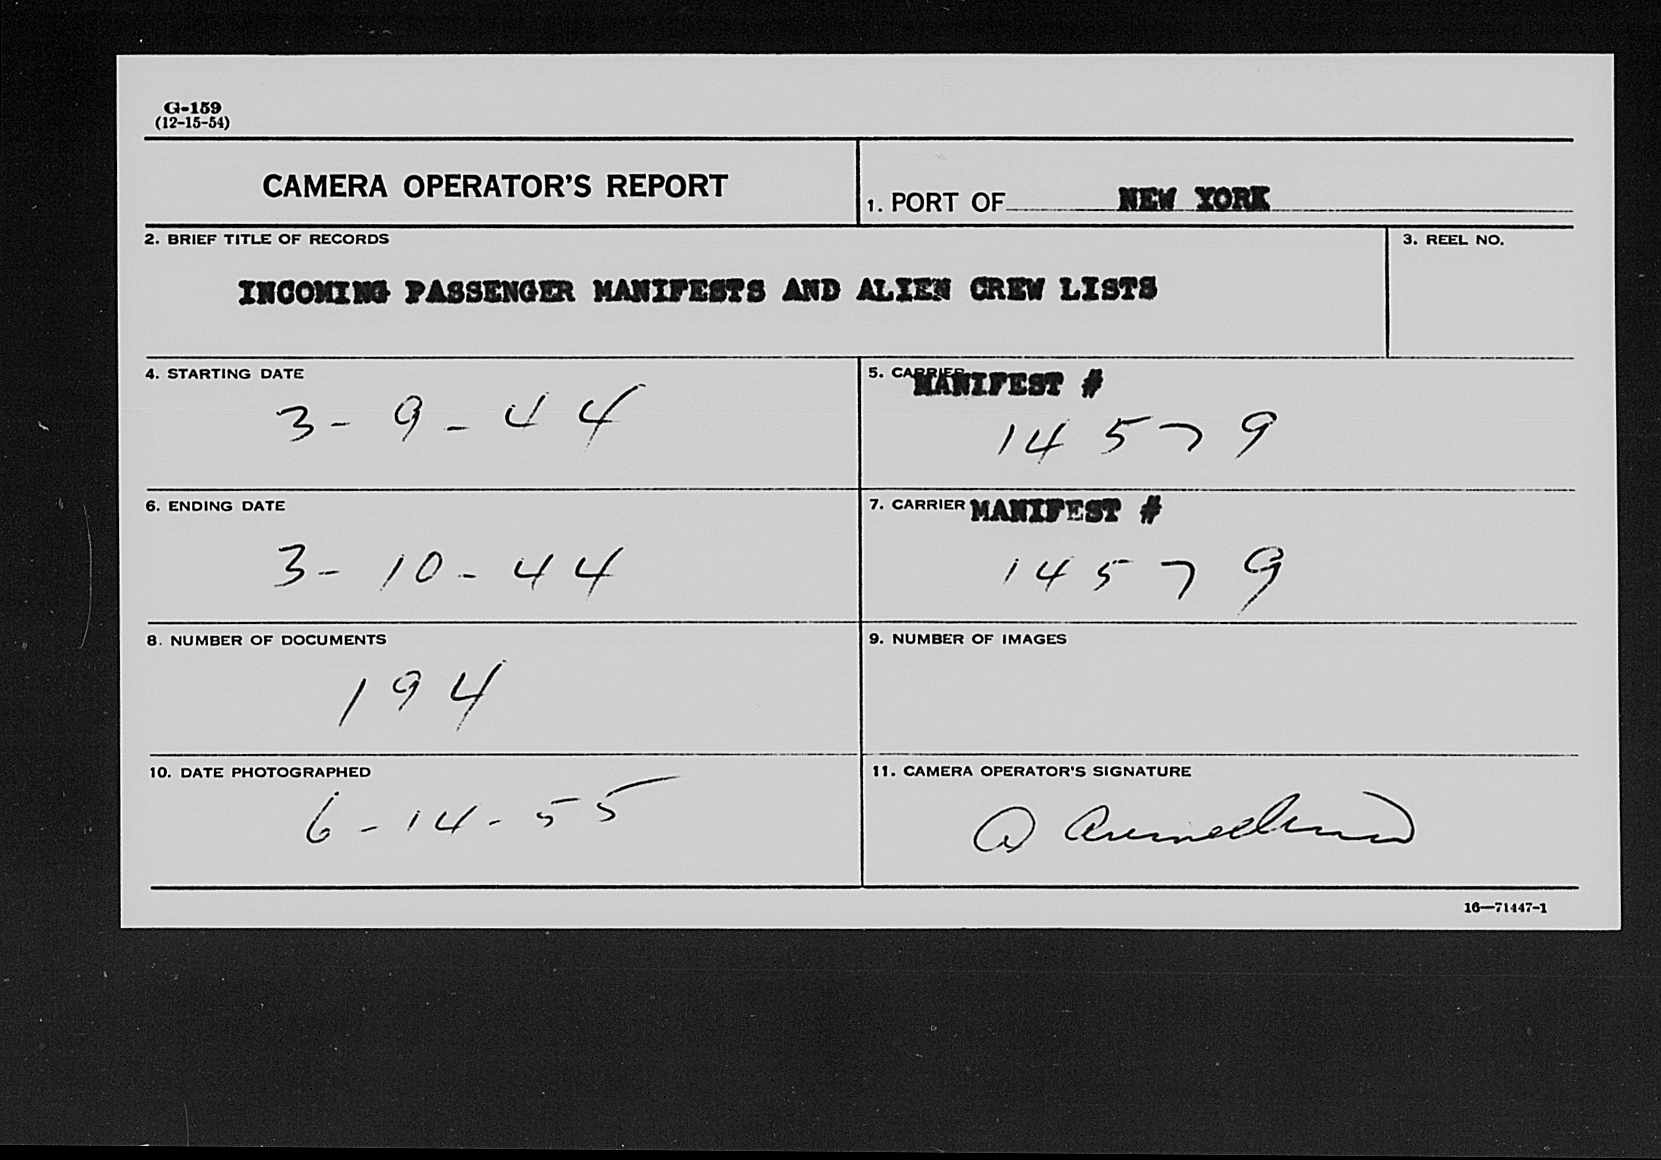 G-159
(12-15-54)
CAMERA OPERATOR'S REPORT
1. PORT OF NEW YORK
2. BRIEF TITLE OF RECORDS
INCOMING PASSENGER MANIFESTS AND ALIEN CREW LISTS
3. REEL NO.
4. STARTING DATE
3-9-44
5. CARRIER MANIFEST #
14579
6. ENDING DATE
3-10-44
7. CARRIER MANIFEST #
14579
8. NUMBER OF DOCUMENTS
194
9. NUMBER OF IMAGES
10. DATE PHOTOGRAPHED
6-14-55
11. CAMERA OPERATOR'S SIGNATURE
16—71447-1